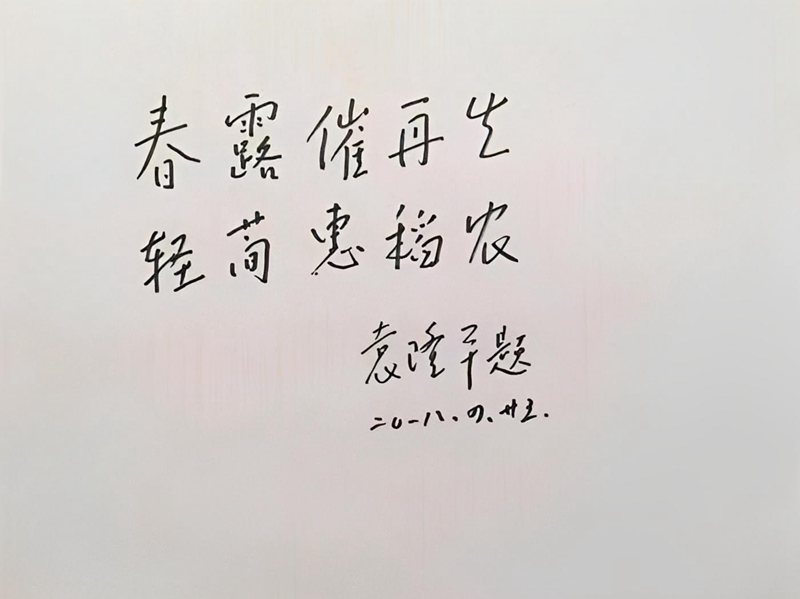 春露催再生
轻简惠稻农
袁隆平题
二〇一八.四.廿五.